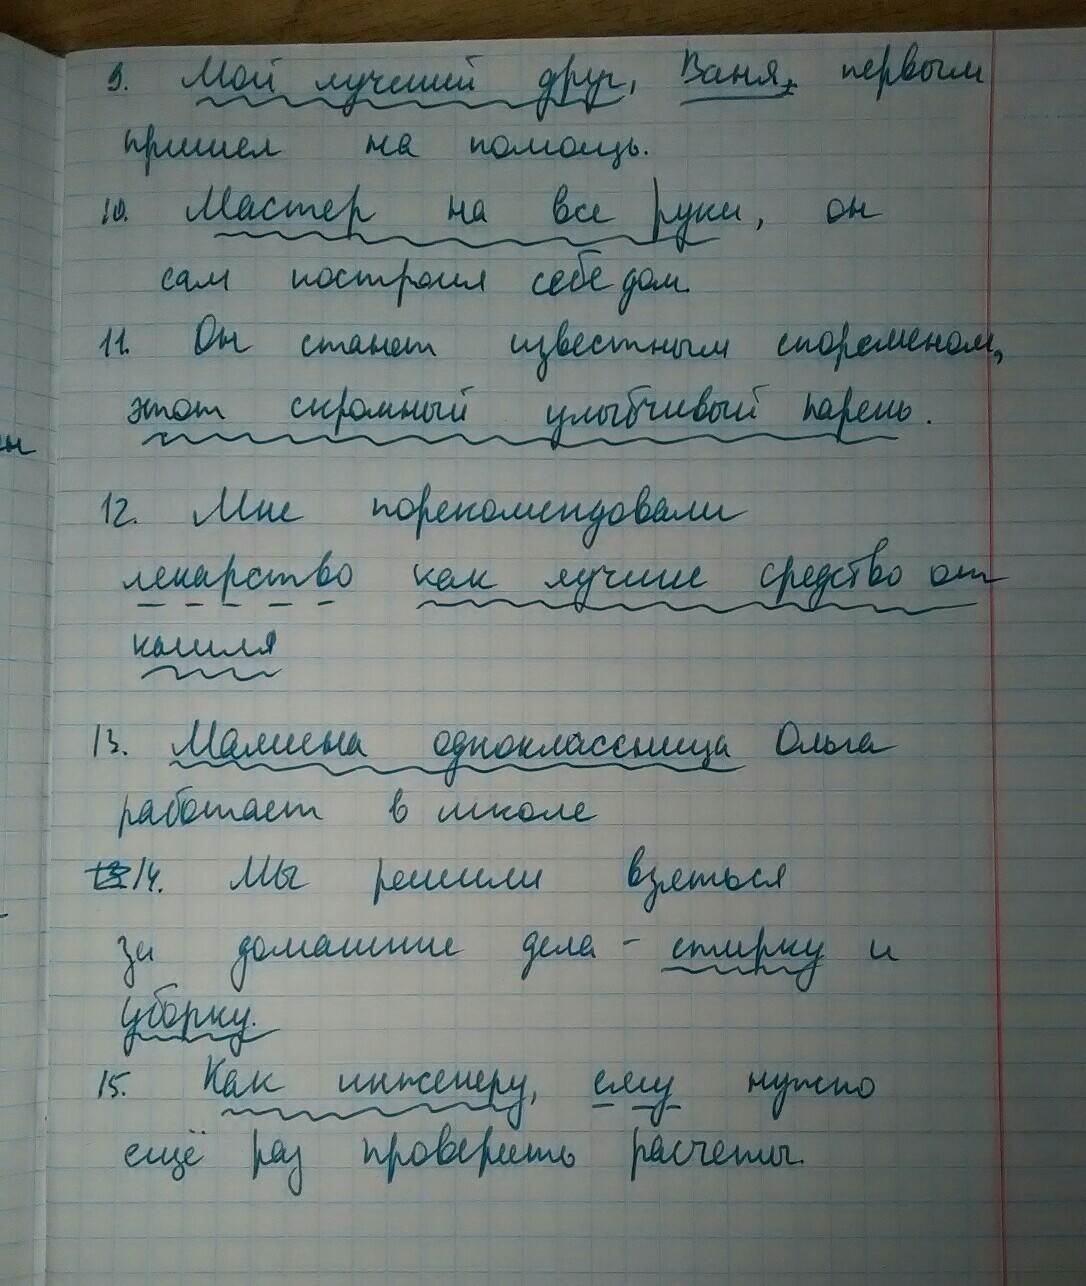 9. Мой лучший друг, Ваня, первым
пришел на помощь.
10. Мастер на все руки, он
сам построил себе дом.
11. Он станет известным споременом,
этот скромный улыбчивый парень.
12. Мне порекомендовали
лекарство как лучшие средство от
кашля
13. Мамина одноклассница Ольга
работает в школе
14. Мы решили взяться
за домашние дела - стирку и
уборку.
15. Как инженеру, ему нужно
ещё раз проверить расчеты.